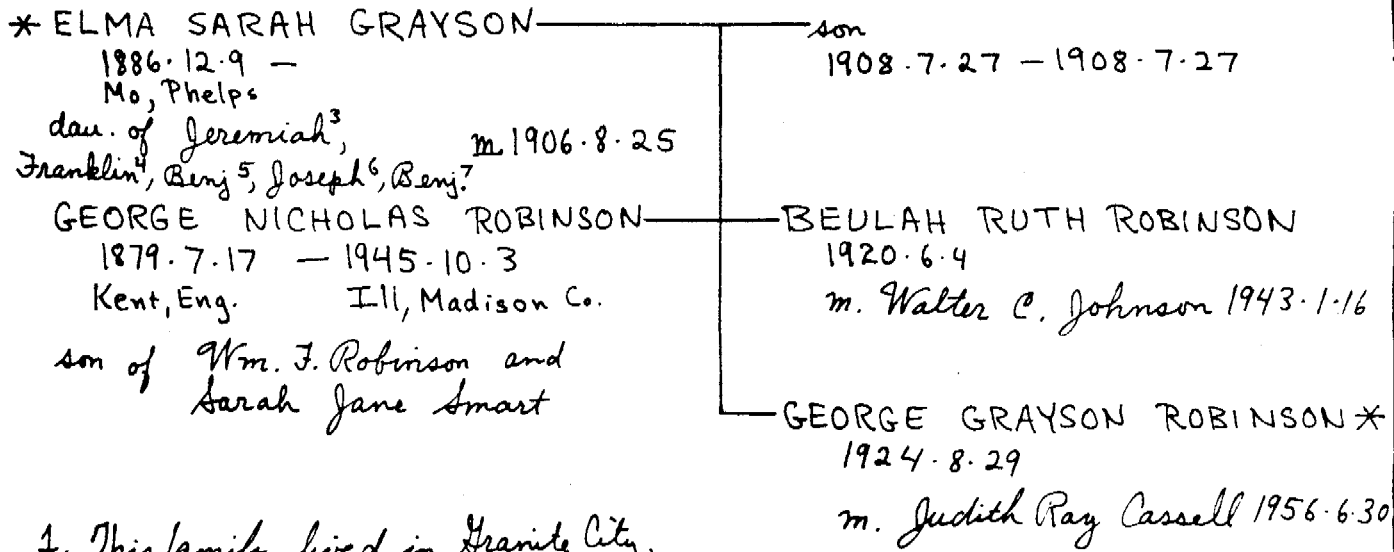 * ELMA SARAH GRAYSON
1886.12.9 —
Mo, Phelps
dau. of Jeremiah³,
m. 1906.8.25
Franklin⁴, Benj⁵, Joseph⁶, Benj.⁷
GEORGE NICHOLAS ROBINSON
1879.7.17 — 1945.10.3
Kent, Eng. Ill, Madison Co.
son of Wm. F. Robinson and
Sarah Jane Smart
son
1908.7.27 — 1908.7.27
BEULAH RUTH ROBINSON
1920.6.4
m. Walter C. Johnson 1943.1.16
GEORGE GRAYSON ROBINSON *
1924.8.29
m. Judith Ray Cassell 1956.6.30
1. This family lived in Granite City.